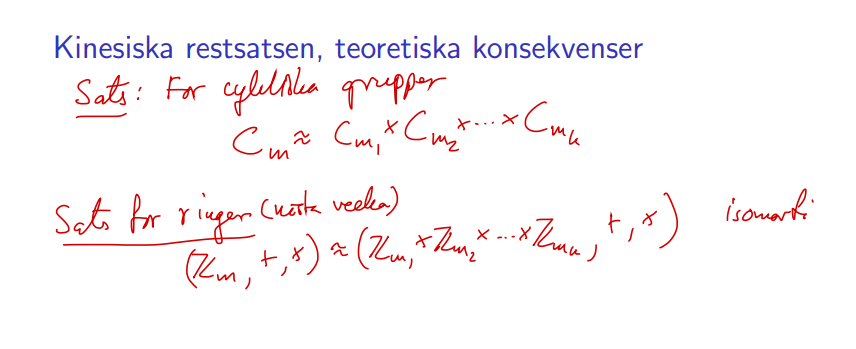 Kinesiska restsatsen, teoretiska konsekvenser
Sats: För cykliska grupper
C_m ≈ C_{m_1} × C_{m_2} × ... × C_{m_k}
Sats för ringer (nästa vecka)
(ℤ_m, +, ×) ≈ (ℤ_{m_1} × ℤ_{m_2} × ... × ℤ_{m_k}, +, ×)